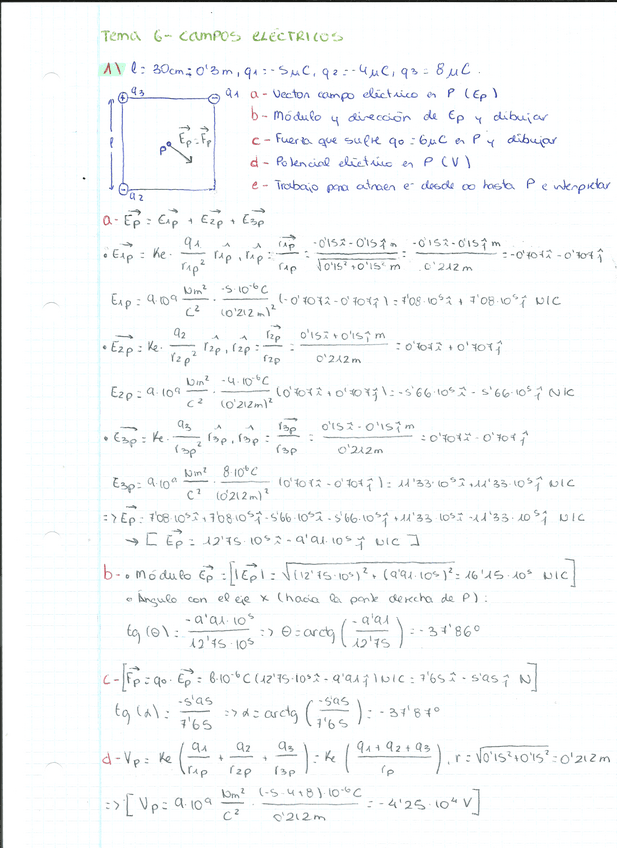 Tema 6- CAMPOS ELÉCTRICOS
1\ l = 30cm = 0'3 m, q1 = -5μC, q2 = -4μC, q3 = 8μC.
q3 q1 a- Vector campo eléctrico en P (Ep)
b- Módulo y dirección de Ep y dibujar
l P Ep = Fp c- Fuerza que sufre q0 = 6μC en P y dibujar
d- Potencial eléctrico en P (V)
q2 e- Trabajo para atraer e⁻ desde ∞ hasta P e interpretar
a- Ep = E1p + E2p + E3p
• E1p = Ke · q1/r1p² r̂1p, r̂1p = r1p/r1p = (-0'15î - 0'15ĵ m)/(√(0'15² + 0'15²) m) = (-0'15î - 0'15ĵ m)/(0'212m) = -0'707î - 0'707ĵ
E1p = 9·10⁹ Nm²/C² · (-5·10⁻⁶C)/(0'212m)² (-0'707î - 0'707ĵ) = 7'08·10⁵î + 7'08·10⁵ĵ N/C
• E2p = Ke · q2/r2p² r̂2p, r̂2p = r2p/r2p = (0'15î + 0'15ĵ m)/(0'212m) = 0'707î + 0'707ĵ
E2p = 9·10⁹ Nm²/C² · (-4·10⁻⁶C)/(0'212m)² (0'707î + 0'707ĵ) = -5'66·10⁵î - 5'66·10⁵ĵ N/C
• E3p = Ke · q3/r3p² r̂3p, r̂3p = r3p/r3p = (0'15î - 0'15ĵ m)/(0'212m) = 0'707î - 0'707ĵ
E3p = 9·10⁹ Nm²/C² · (8·10⁻⁶C)/(0'212m)² (0'707î - 0'707ĵ) = 11'33·10⁵î + 11'33·10⁵ĵ N/C
=> Ep = 7'08·10⁵î + 7'08·10⁵ĵ - 5'66·10⁵î - 5'66·10⁵ĵ + 11'33·10⁵î - 11'33·10⁵ĵ N/C
→ [Ep = 12'75·10⁵î - 9'91·10⁵ĵ N/C]
b- • Módulo Ep = [|Ep| = √((12'75·10⁵)² + (9'91·10⁵)²) = 16'15·10⁵ N/C]
• Ángulo con el eje x (hacia la parte derecha de P):
tg(θ) = (-9'91·10⁵)/(12'75·10⁵) => θ = arctg(-9'91/12'75) = -37'86º
c- [Fp = q0 · Ep = 6·10⁻⁶C (12'75·10⁵î - 9'91·10⁵ĵ) N/C = 7'65î - 5'95ĵ N]
tg(α) = -5'95/7'65 => α = arctg(-5'95/7'65) = -37'87º
d- Vp = Ke (q1/r1p + q2/r2p + q3/r3p) = Ke ((q1 + q2 + q3)/rp), r = √(0'15² + 0'15²) = 0'212m
=> [Vp = 9·10⁹ Nm²/C² · ((-5-4+8)·10⁻⁶C)/(0'212m) = -4'25·10⁴ V]